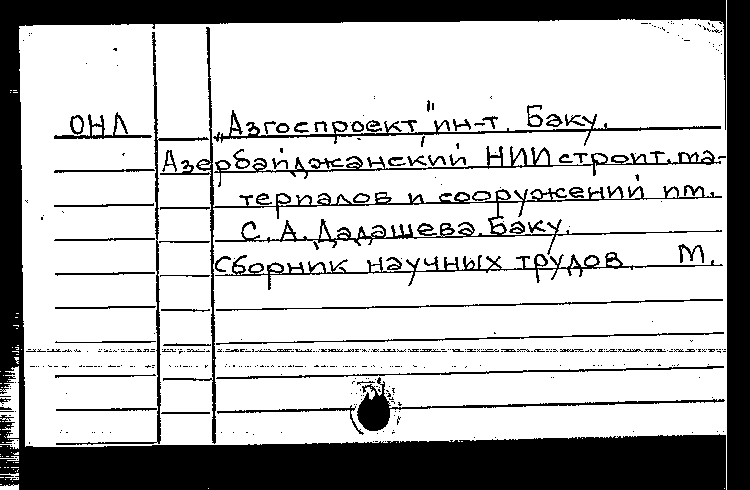 ОНЛ „Азгоспроект" ин-т. Баку.
Азербайджанский НИИ строит. ма-
териалов и сооружений им.
С. А. Дадашева. Баку.
Сборник научных трудов. М.